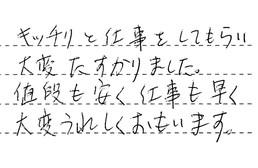 キッチリと仕事をしてもらい
大変たすかりました。
値段も安く仕事も早く
大変うれしくおもいます。